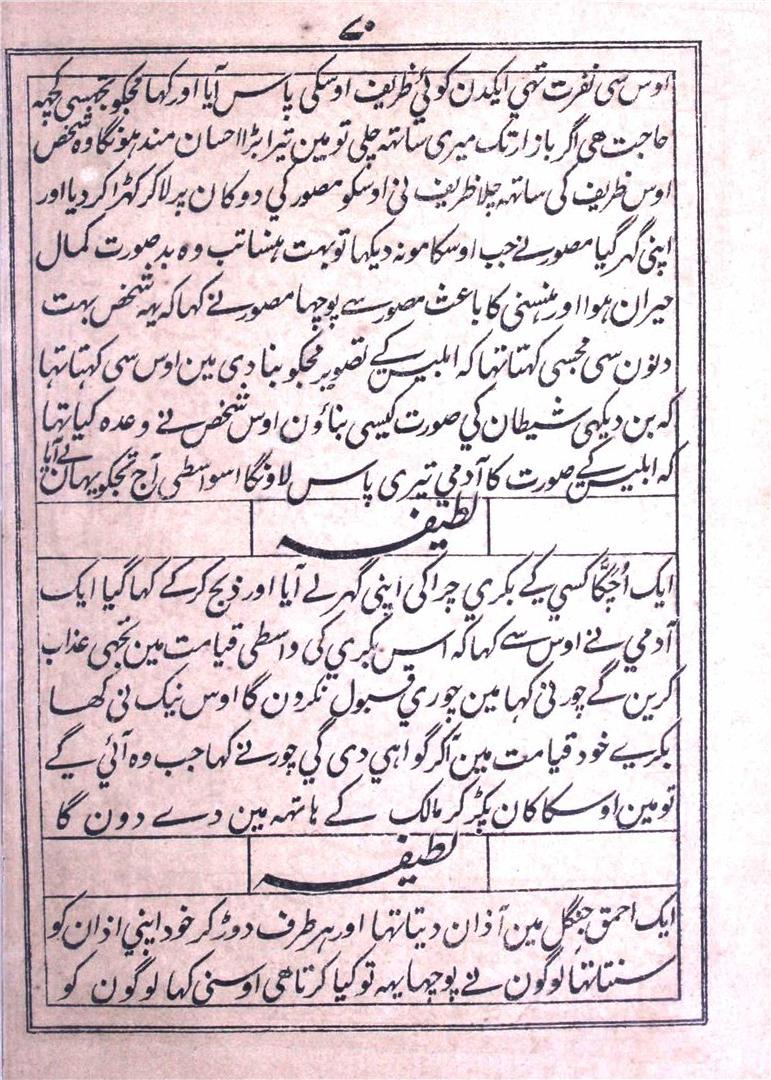 ۷۰
اوس سی نفرت تھی ایکدن کوئی ظریف اوسکی پاس آیا اور کہا مجکو تجہسی کچہہ
حاجت ھی اگر بازار تک میری ساتہہ چلی تو مین تیرا بڑا احسان مند ہونگا وہ شخص
اوس ظریف کی ساتہہ چلا ظریف نی اوسکو مصور کی دوکان پر لاکر کہڑا کردیا اور
اپنی گہر گیا مصور نے جب اوسکا مونہ دیکہا تو بہت ہنسا تب وہ بدصورت کمال
حیران ہوا اور ہنسنی کا باعث مصور سے پوچہا مصور نے کہا کہ یہہ شخص بہت
دلون سی مجسی کہتا تہا کہ ابلیس کے تصویر مجکو بنا دی مین اوس سی کہتا تہا
کہ بن دیکہی شیطان کی صورت کیسی بناؤن اوس شخص نے وعدہ کیا تہا
کہ ابلیس کے صورت کا آدمی تیری پاس لاونگا اسواسطی آج تجکو یہان لے آیا
لطیفہ
ایک اُچکَّا کسی کے بکری چراکی اپنی گہر لے آیا اور ذبح کرکے کہا گیا ایک
آدمی نے اوس سے کہا کہ اس بکری کی واسطی قیامت مین تجہی عذاب
کرین گے چور نی کہا مین چوری قبول نکرون گا اوس نیک نی کھا
بکریے خود قیامت مین آکر گواہی دی گی چور نے کہا جب وہ آئی گے
تو مین اوسکا کان پکڑ کر مالک کے ہاتہہ مین دے دون گا
لطیفہ
ایک احمق جنگل مین آذان دیتا تہا اور ہر طرف دوڑ کر خود اپنی اذان کو
سنتا تہا لوگون نے پوچہا یہہ تو کیا کرتا ھی اوسنی کہا لوگون کو